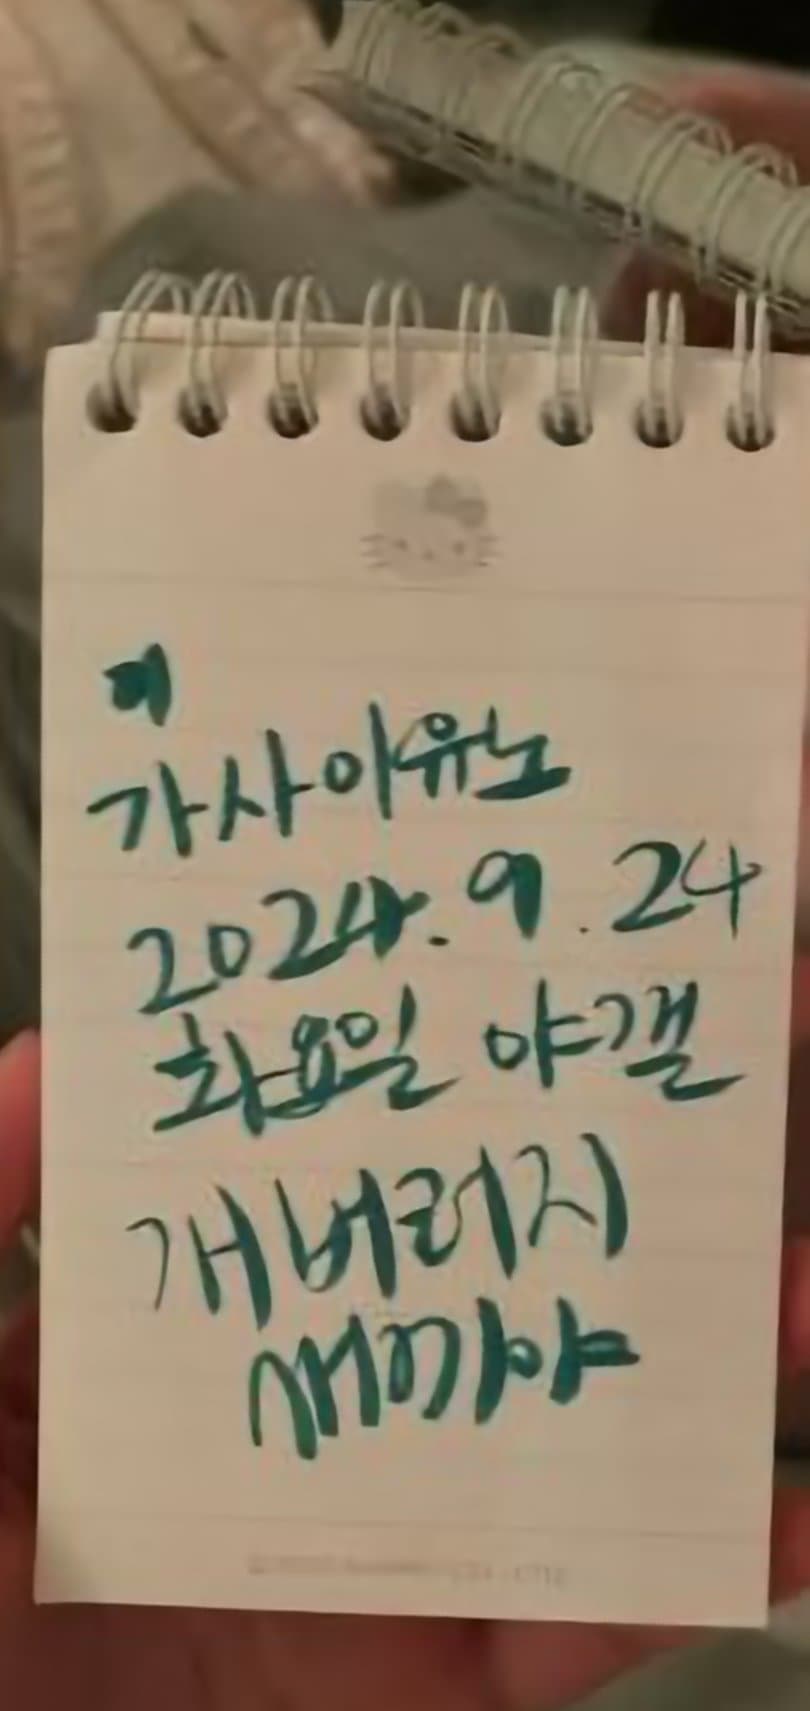 가사이유노
2024.9.24
화요일 야갤
개버러지
새끼야